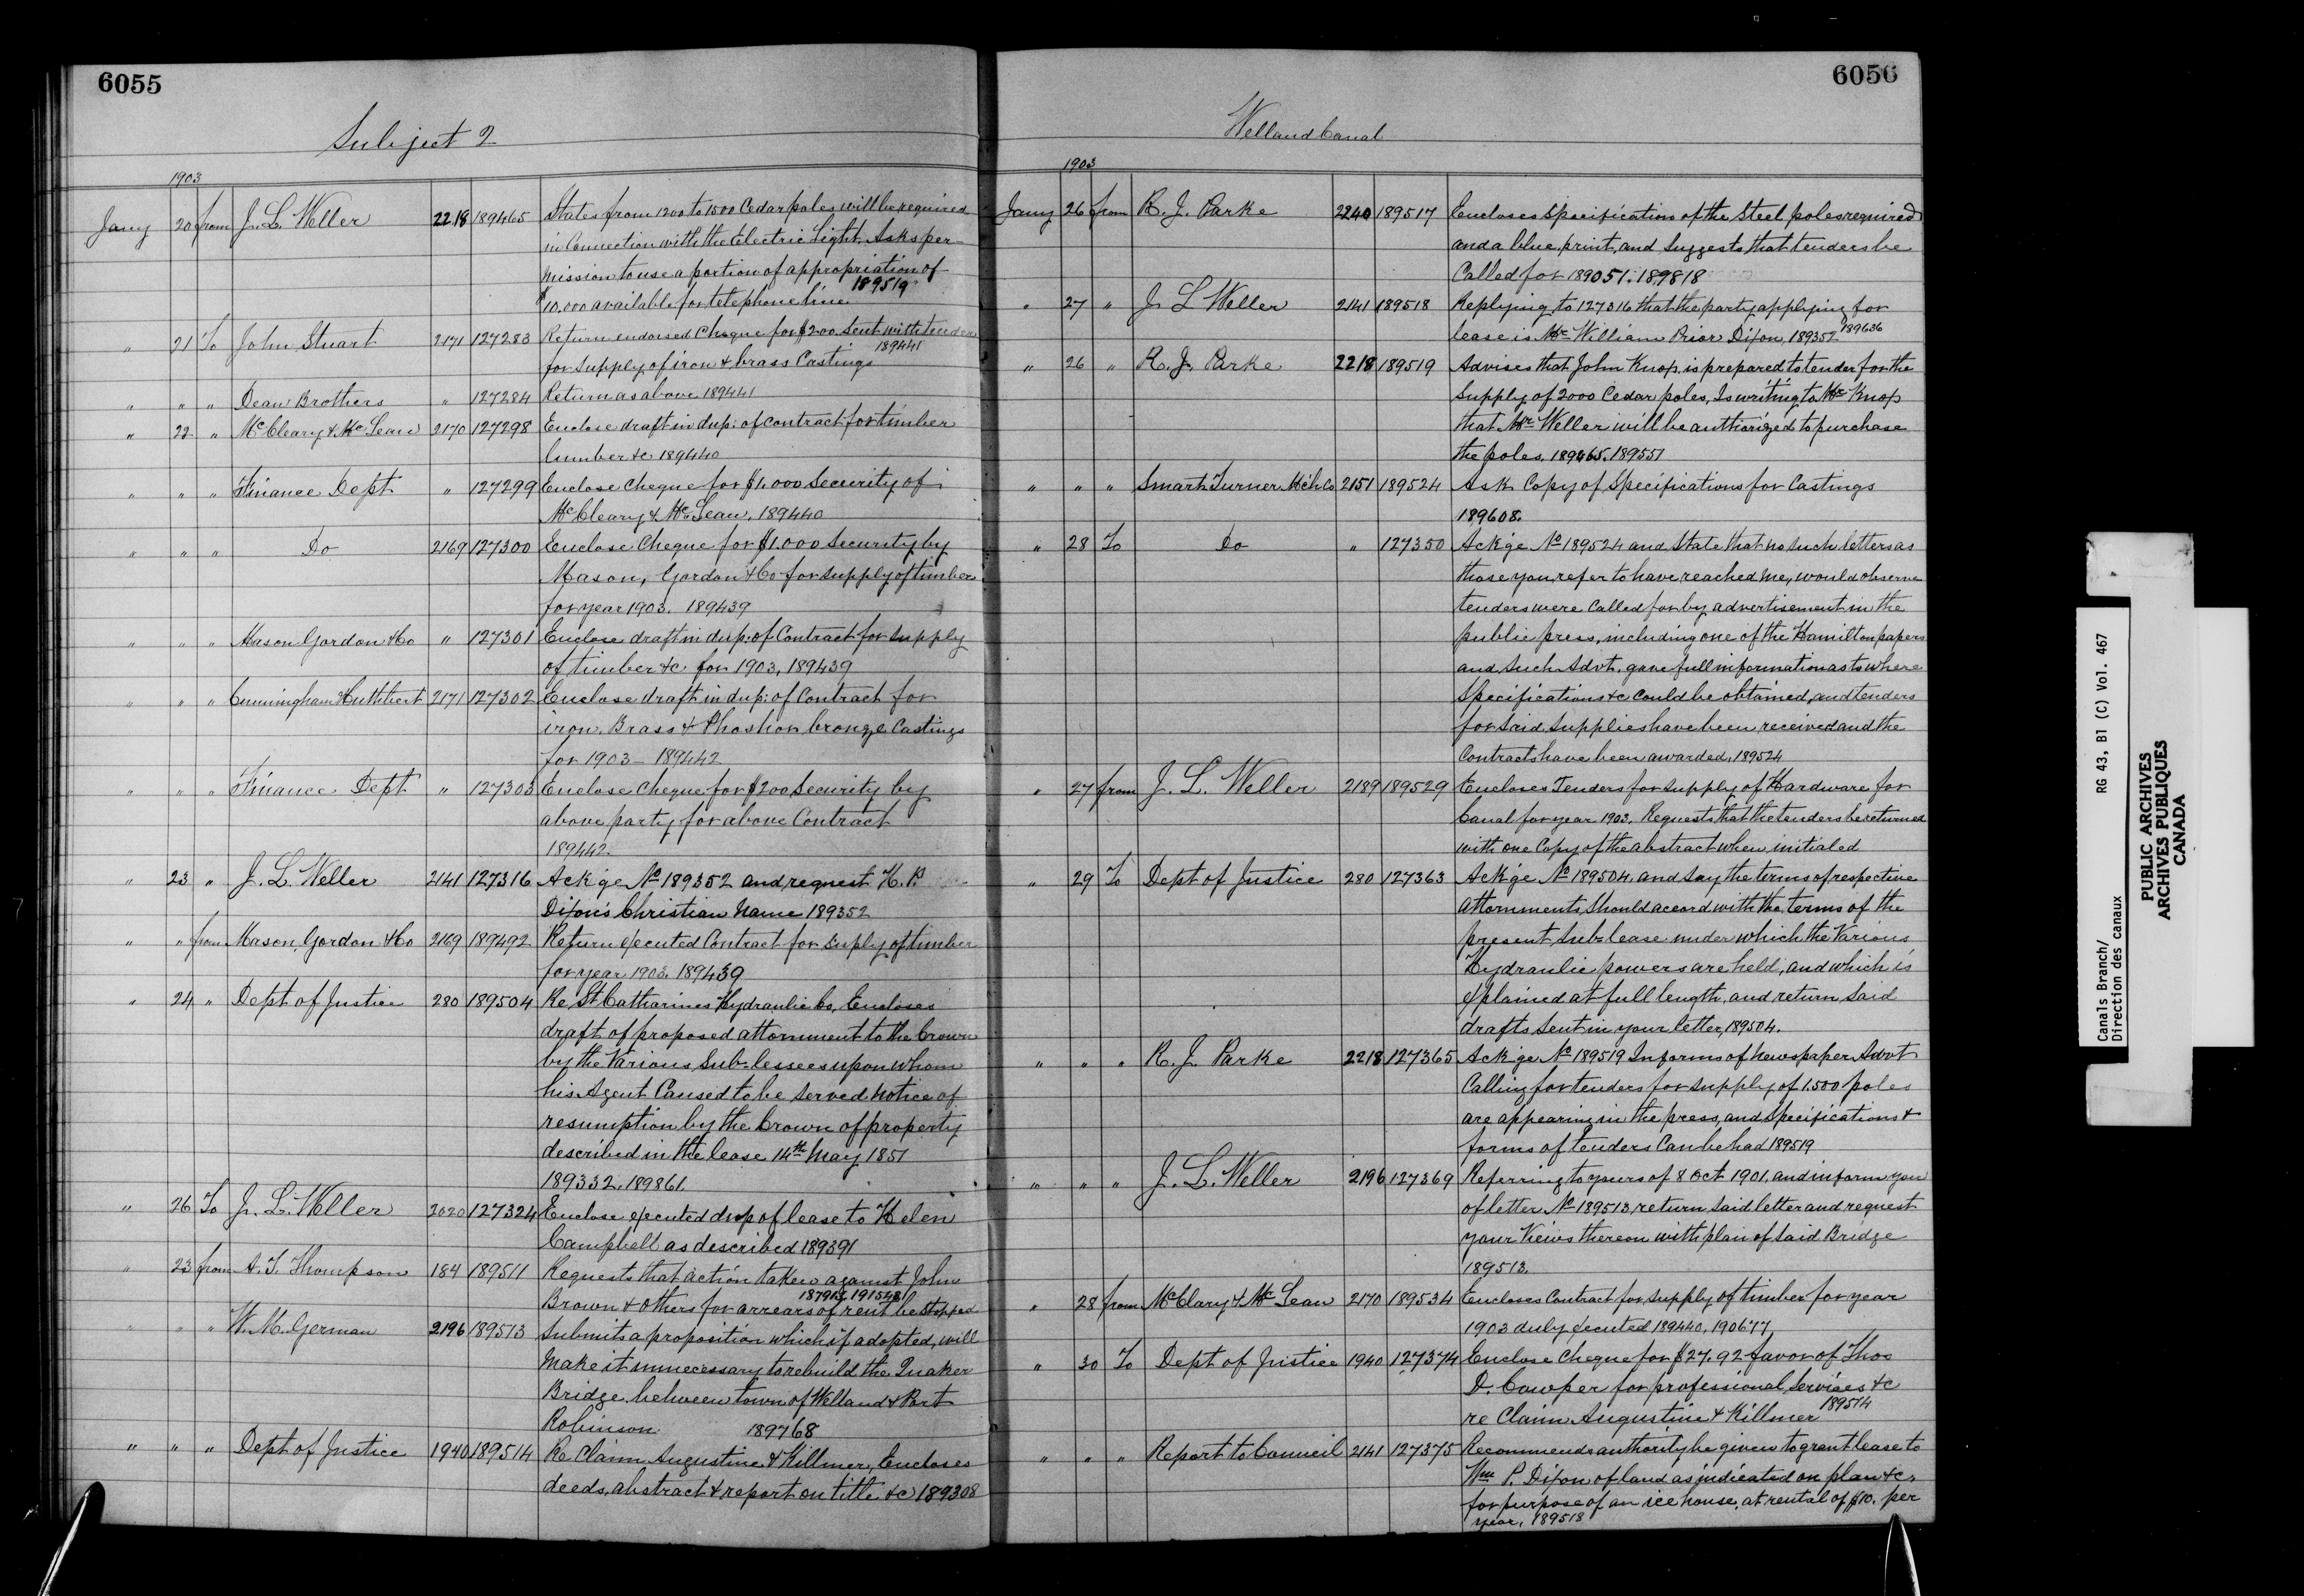 6055
Subject 2
1903
Jany 20 from J. L. Weller 2218 189465 States from 1200 to 1500 Cedar poles will be required
in Connection with the Electric Light. Asks per-
mission to use a portion of appropriation of
$10.000 available for telephone line 189519
" 21 To John Stuart 2171 127283 Return endorsed Cheque for $200. sent with tender
for supply of iron & brass Castings 189441
" " " Dean Brothers " 127284 Return as above 189441
" 22 " McCleary & McLean 2170 127298 Enclose draft in dup: of contract for timber
lumber &c 189440
" " " Finance Dept " 127299 Enclose Cheque for $1.000 Security of
McCleary & McLean. 189440
" " " Do 2169 127300 Enclose Cheque for $1.000 Security by
Mason, Gordon & Co for supply of timber
for year 1903. 189439
" " " Mason Gordon & Co " 127301 Enclose draft in dup: of Contract for supply
of timber &c for 1903, 189439
" " " Cunningham & Cuthbert 2171 127302 Enclose draft in dup: of Contract for
iron, Brass & Phoshor bronze Castings
for 1903 - 189442
" " " Finance Dept " 127303 Enclose Cheque for $200 Security by
above party for above Contract
189442.
" 23 " J. L. Weller 2141 127316 Ackge No 189352 and request
Dixon's Christian Name 189352
" " from Mason, Gordon & Co 2169 189492 Return executed Contract for suply of timber
for year 1903. 189439
" 24 " Dept of Justice 280 189504 Re St Catharines Hydraulic Co, Encloses
draft of proposed attornment to the Crown
by the Various Sub-lessees upon whom
his Agent Caused to be served notice of
resumption by the Crown of property
described in the lease 14th May 1851
189332. 189861.
" 26 To J. L. Weller 2020 127324 Enclose executed dup of lease to Helen
Campbell as described 189391
" 23 from A. T. Thompson 184 189511 Requests that action taken against John
Brown & others for arrears of rent be stopped
" " " W. M. German 2196 189513 Submits a proposition which if adopted, will
make it unnecessary to rebuild the Quaker
Bridge between town of Welland & Port
Robinson 189768
" " " Dept of Justice 1940 189514 Re Claim Augustine & Killmer, Encloses
deeds, abstract & report on title &c 189308
6056
Welland Canal
1903
Jany 26 from R. J. Parke 2240 189517 Encloses Specification of the Steel poles required
and a blue print, and Suggests that tenders be
Called for 189051. 189818
" 27 " J L Weller 2141 189518 Replying to 127316 that the party applying for
lease is Mr William Prior Dixon, 189352 189636
" 26 " R. J. Parke 2218 189519 Advises that John Knop, is prepared to tender for the
supply of 2000 Cedar poles, Is writing to Mr Knop
that Mr Weller will be authorized to purchase
the poles. 189465. 189551
" " " Smart Turner Mch Co 2151 189524 Ask Copy of Specifications for Castings
189608.
" 28 To Do " 127350 Ackge No 189524 and State that no such letters as
those you refer to have reached me, would observe
tenders were Called for by advertisement in the
public press, including one of the Hamilton papers
and such Advt. gave full information as to where
Specifications &c could be obtained, and tenders
for said supplies have been received and the
Contracts have been awarded. 189524
" 27 from J. L. Weller 2189 189529 Encloses Tenders for supply of Hardware for
Canal for year 1903. Requests that the tenders be returned
with one Copy of the abstract when initialed
" 29 To Dept of Justice 280 127363 Ackge No 189504. and say the terms of respective
attornments should accord with the terms of the
present Sub-lease under which the Various
Hydraulic powers are held, and which is
explained at full length, and return Said
drafts Sent in your letter, 189504.
" " " R. J. Parke 2218 127365 Ackge No 189519 Informs of Newspaper Advt
Calling for tenders for supply of 1.500 poles
are appearing in the press, and Specifications &
forms of tenders Can be had 189519
" " " J. L. Weller 2196 127369 Referring to yours of 8 Oct 1901. and inform you
of letter No 189513, return said letter and request
your Views thereon with plan of said Bridge
189513.
" 28 from McClary & McLean 2170 189534 Encloses Contract for supply of timber for year
1903 duly executed 189440, 190677,
" 30 To Dept of Justice 1940 127374 Enclose Cheque for $27.92 favor of Thos
D. Cowper for professional Services &c
re Claim Augustine & Killmer 189514
" " " Report to Council 2141 127375 Recommends authority be given to grant lease to
Wm P. Dixon of land as indicated on plan &c.
for purpose of an ice house, at rental of $10. per
year. 189518
Canals Branch/
Direction des canaux
RG 43, B1 (C) Vol. 467
PUBLIC ARCHIVES
ARCHIVES PUBLIQUES
CANADA